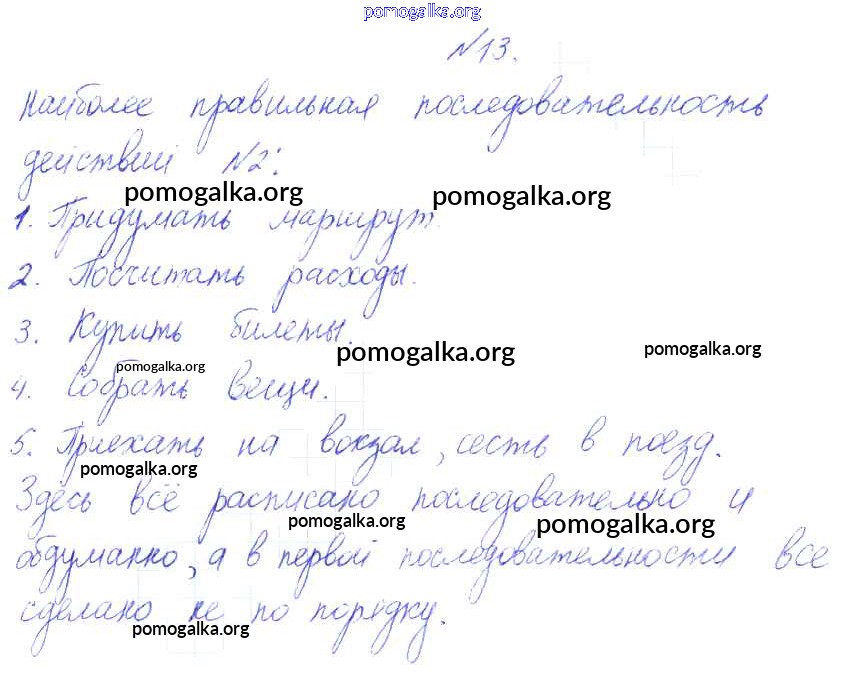 pomogalka.org
№13.
Наиболее правильная последовательность
действий №2:
pomogalka.org pomogalka.org
1. Придумать маршрут.
2. Посчитать расходы.
3. Купить билеты.
pomogalka.org pomogalka.org
pomogalka.org
4. Собрать вещи.
5. Приехать на вокзал, сесть в поезд.
pomogalka.org
Здесь всё расписано последовательно и
pomogalka.org pomogalka.org
обдуманно, а в первой последовательности все
сделано не по порядку.
pomogalka.org